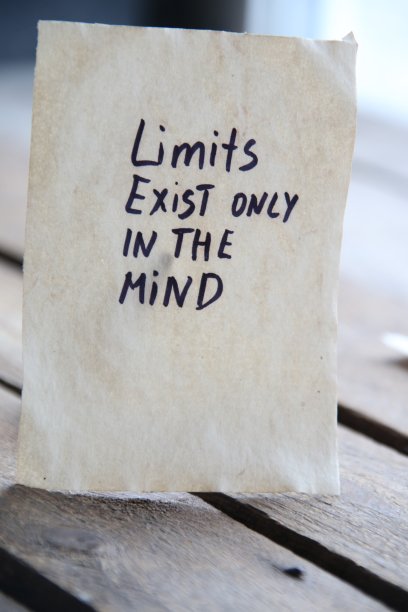 Limits
EXiST ONLY
IN THE
MiND